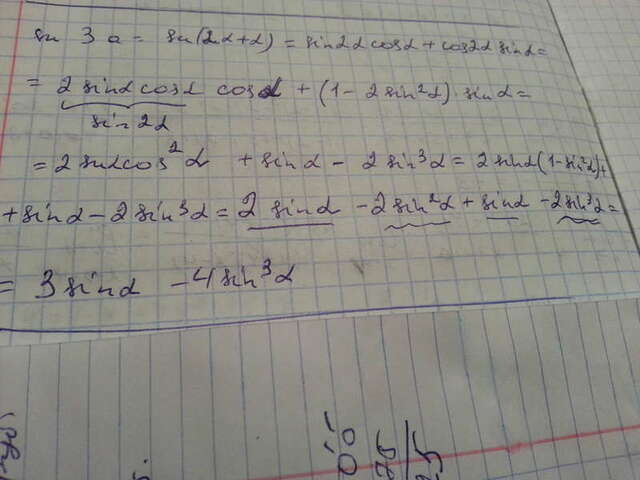 sin 3α = sin(2α+α) = sin2α cosα + cos2α sinα =
= 2 sinα cosα cosα + (1 - 2sin²α) · sinα =
sin 2α
= 2sinαcos²α + sinα - 2sin³α = 2sinα(1-sin²α)+
+sinα - 2sin³α = 2sinα - 2sin²α + sinα - 2sin³α =
= 3sinα - 4sin³α